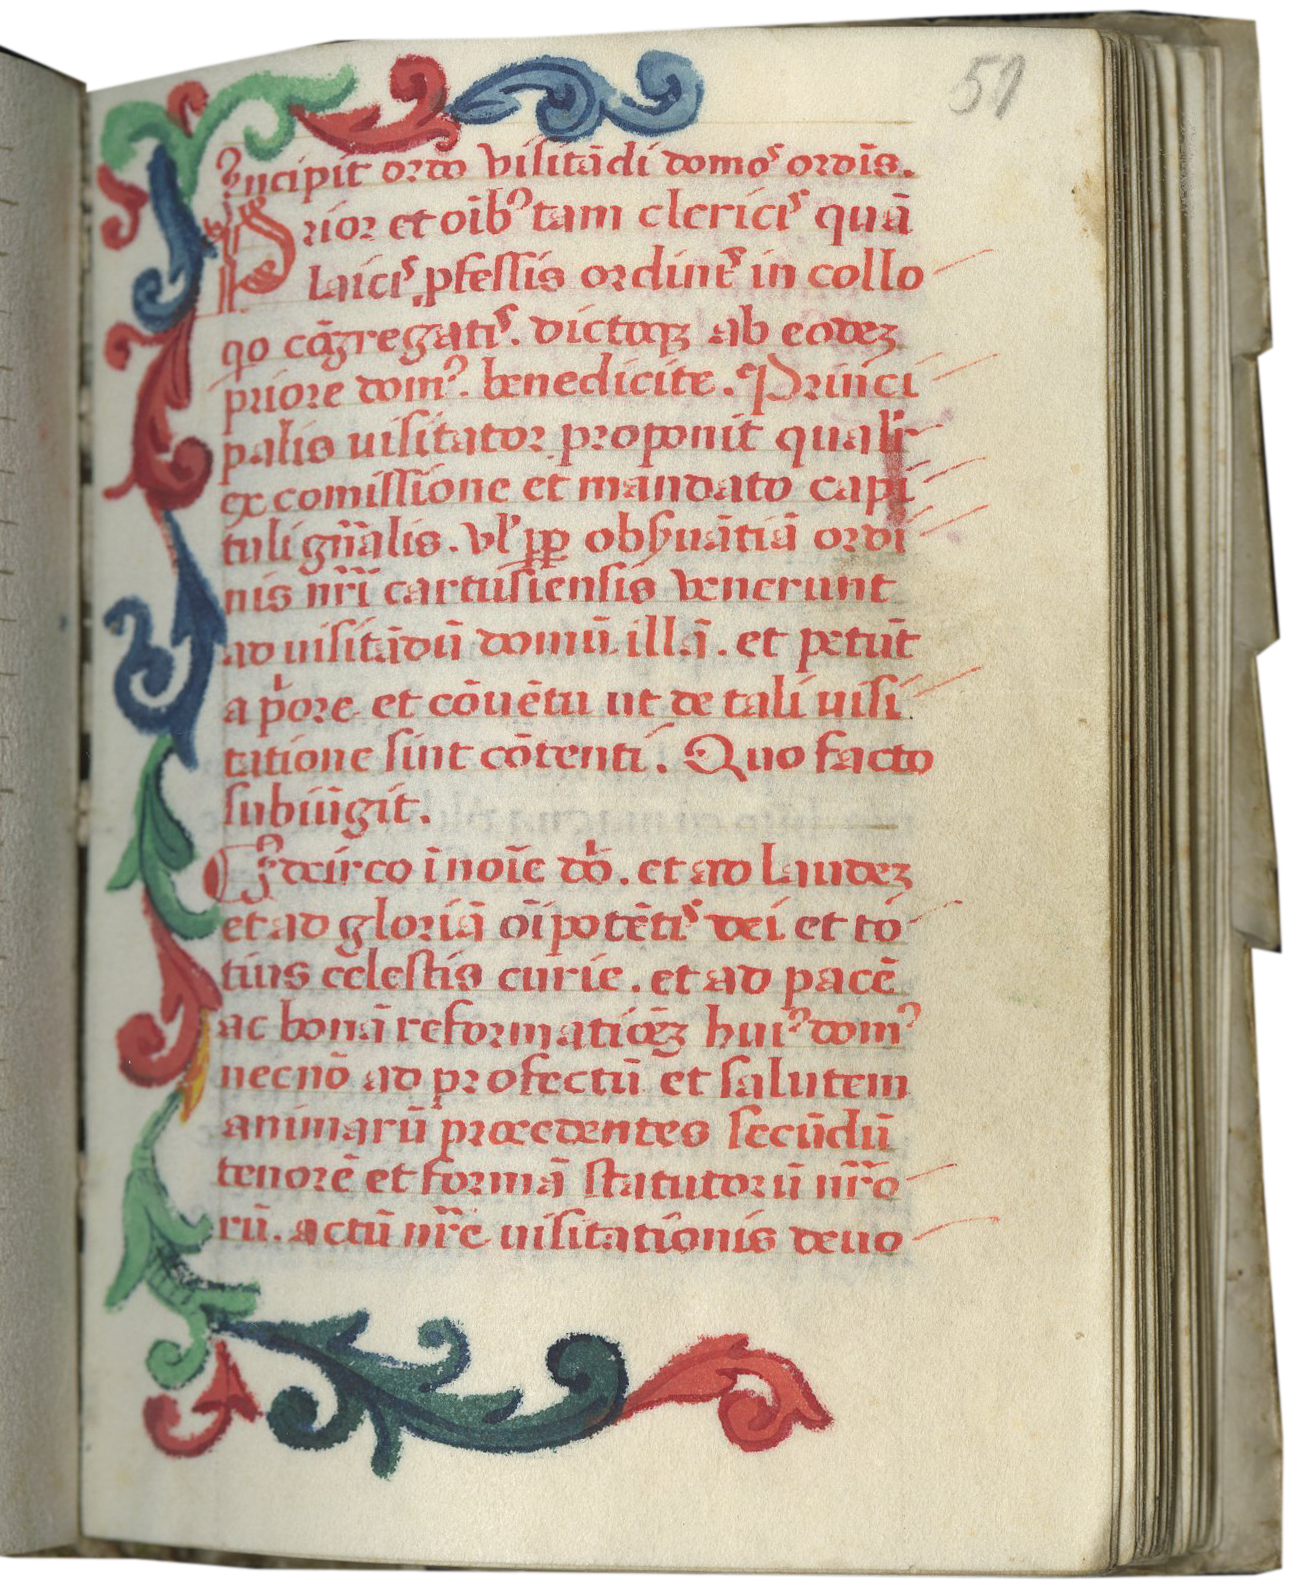 51
Incipit ordo visitādi domoꝰ ordīs.
Prior et oīb⁹ tam clericꝭ quā
laicꝭ ꝓfessis ordinꝭ in collo
qo cōgregatꝭ. dictoqꝫ ab eodeꝫ
priore dom⁹. benedicite. Princi
palis uisitator proponit qualr̄
ex comissione et mandato capi
tuli gn̄alis. vl' ꝓpꝑ obẛuātiā ordi
nis nr̄i cartusiensis venerunt
ad uisitādū domū illā. et petūt
a p̓ore et cōuētu ut de tali uisi
tatione sint cōtenti. Quo facto
subiūgit.
Idcirco ī noīe dn̄i. et ad laudeꝫ
et ad gloriā oīpotētꝭ dei et to
tius celestis curie. et ad pacē
ac bonā reformatiōeꝫ hui⁹ dom⁹
necnō ad profectū et salutem
animarū procedentes secūdū
tenorē et formā statutorū nr̄o
rū. actū nr̄e uisitationis deuo